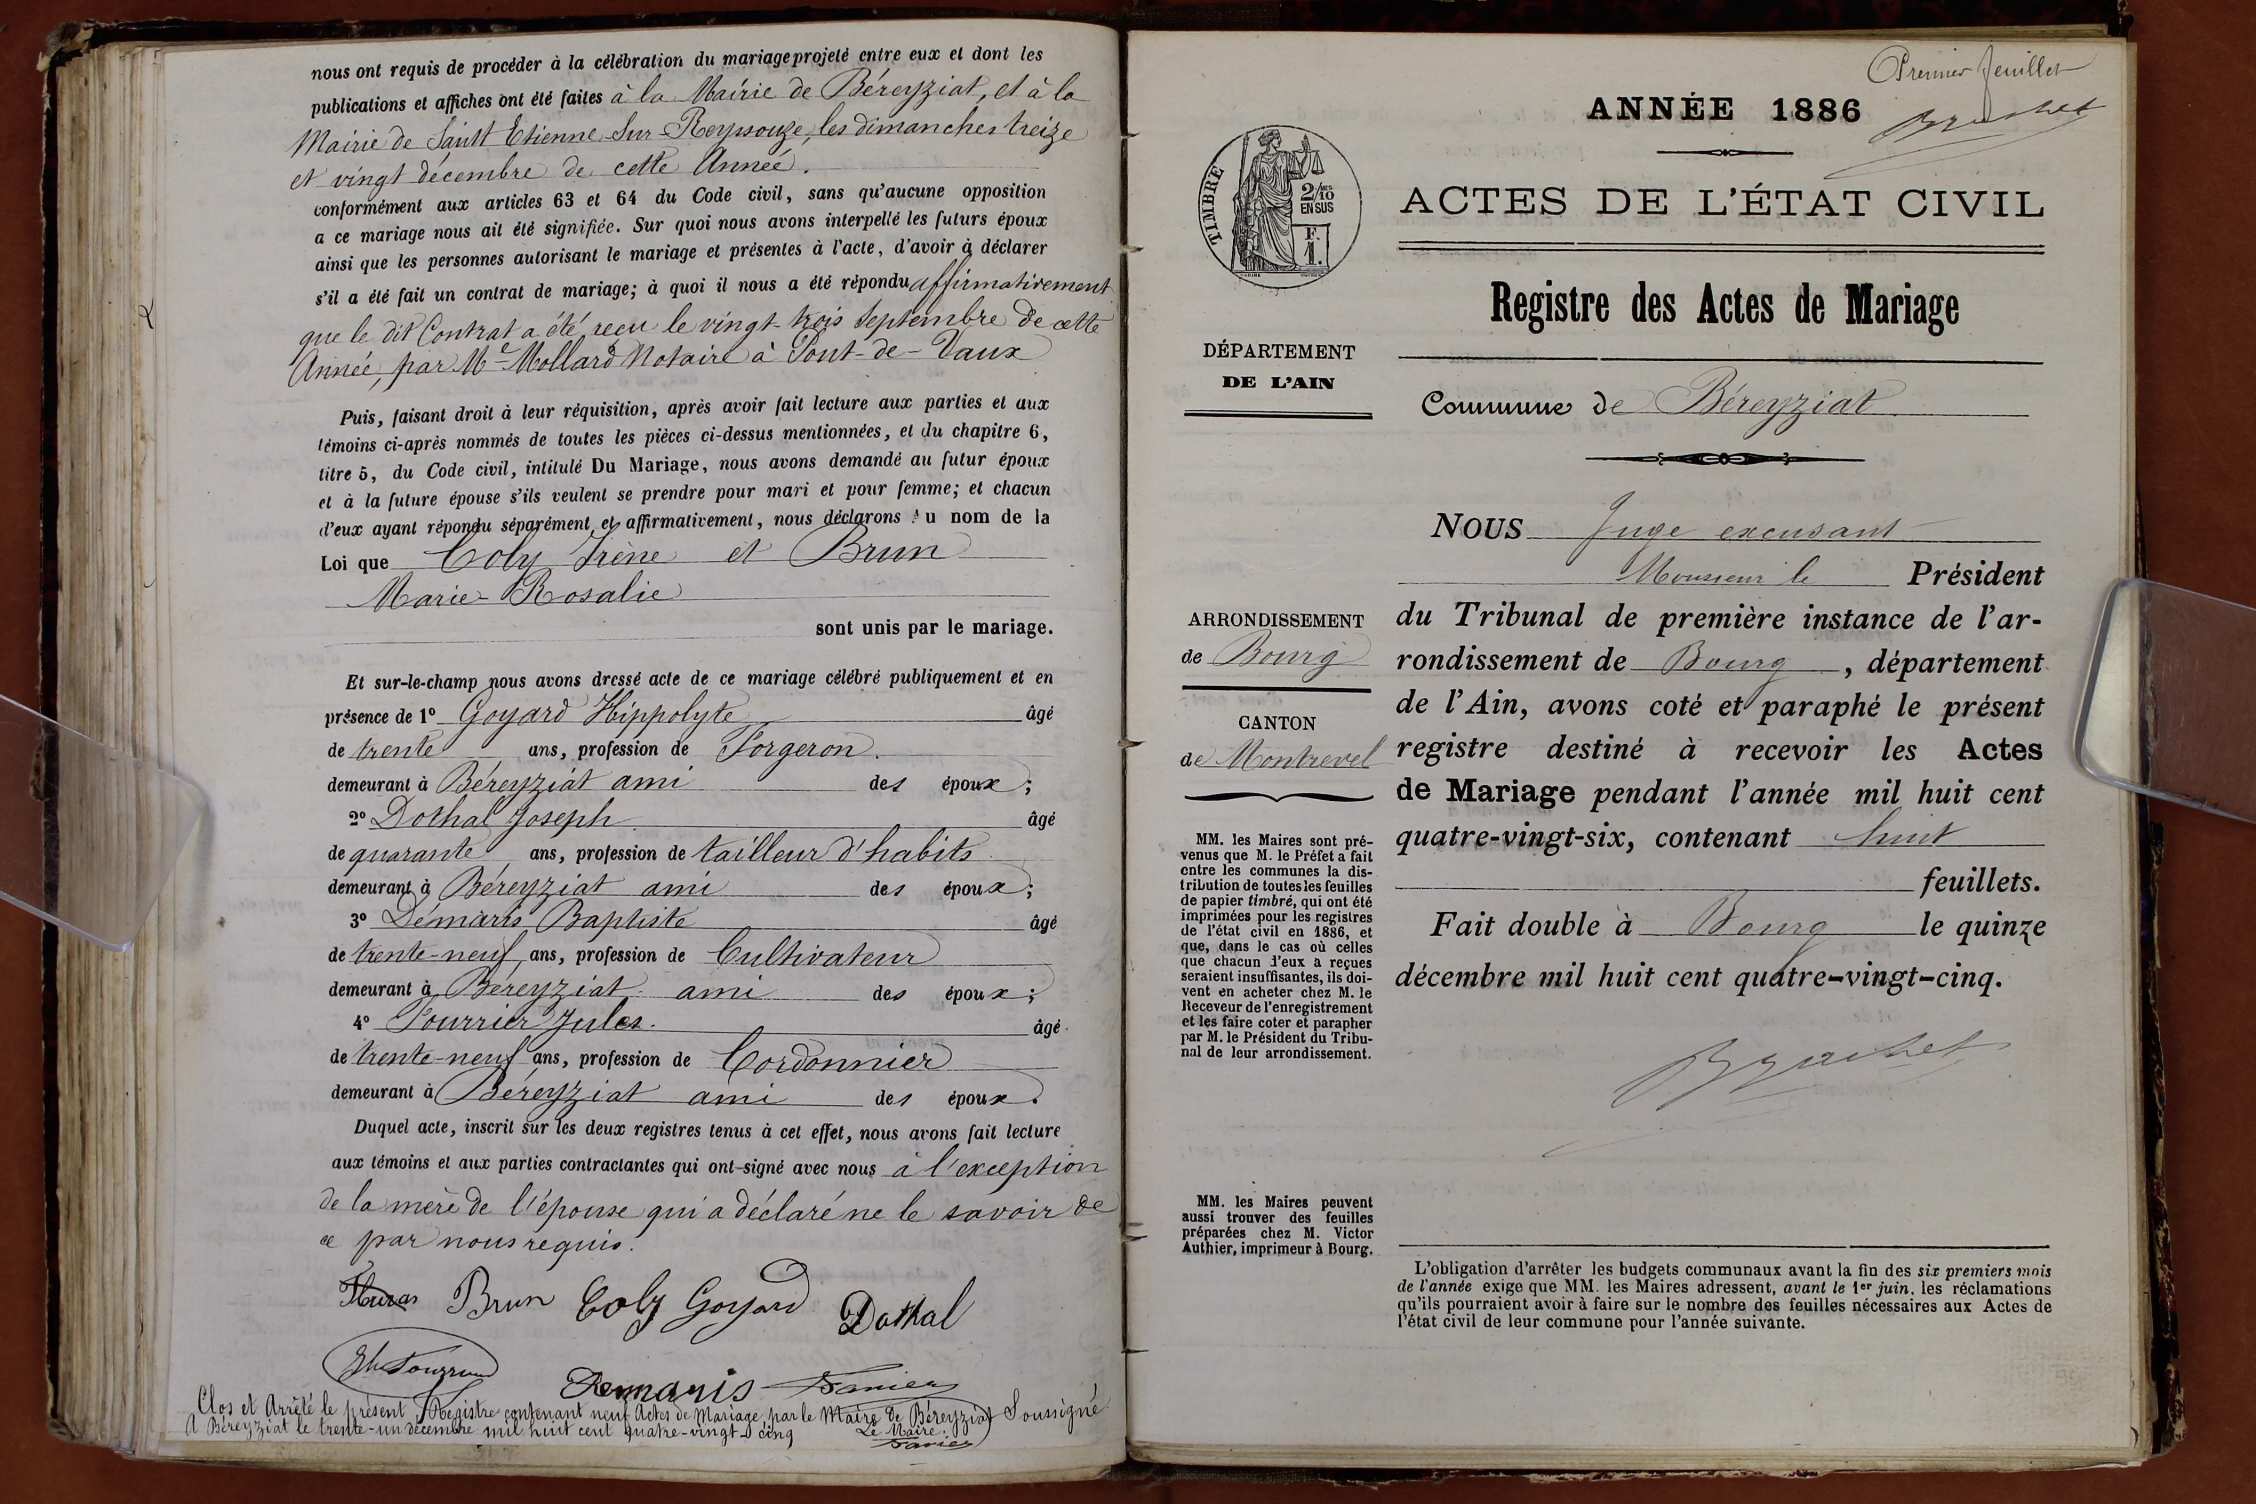 nous ont requis de procéder à la célébration du mariage projeté entre eux et dont les
publications et affiches ont été faites à la Mairie de Béreyziat, et à la
Mairie de Saint Etienne-Sur-Reyssouze, les dimanches treize
et vingt décembre de cette Année.
conformément aux articles 63 et 64 du Code civil, sans qu'aucune opposition
a ce mariage nous ait été signifiée. Sur quoi nous avons interpellé les futurs époux
ainsi que les personnes autorisant le mariage et présentes à l'acte, d'avoir à déclarer
s'il a été fait un contrat de mariage; à quoi il nous a été répondu affirmativement
que le dit Contrat a été reçu le vingt-trois septembre de cette
Année, par Me Mollard Notaire à Pont-de-Vaux
Puis, faisant droit à leur réquisition, après avoir fait lecture aux parties et aux
témoins ci-après nommés de toutes les pièces ci-dessus mentionnées, et du chapitre 6,
titre 5, du Code civil, intitulé Du Mariage, nous avons demandé au futur époux
et à la future épouse s'ils veulent se prendre pour mari et pour femme; et chacun
d'eux ayant répondu séparément et affirmativement, nous déclarons Au nom de la
Loi que Coly Irène et Brun
Marie-Rosalie
sont unis par le mariage.
Et sur-le-champ nous avons dressé acte de ce mariage célébré publiquement et en
présence de 1º Goyard Hippolyte âgé
de trente ans, profession de Forgeron.
demeurant à Béreyziat ami des époux;
2º Dothal Joseph âgé
de quarante ans, profession de tailleur d'habits
demeurant à Béreyziat ami des époux;
3º Démaris Baptiste âgé
de trente-neuf ans, profession de Cultivateur
demeurant à Béreyziat ami des époux;
4º Fourrier Jules. âgé
de trente-neuf ans, profession de Cordonnier
demeurant à Béreyziat ami des époux.
Duquel acte, inscrit sur les deux registres tenus à cet effet, nous avons fait lecture
aux témoins et aux parties contractantes qui ont signé avec nous à l'exception
de la mère de l'épouse qui a déclaré ne le savoir de
ce par nous requis.
Brun Coly Goyard Dothal
Demaris
Clos et Arrêté le présent Registre contenant neuf Actes de Mariage, par le Maire de Béreyziat Soussigné
A Béreyziat le trente-un décembre mil huit cent quatre-vingt-cinq
Le Maire.
Premier feuillet
Brachet
ANNÉE 1886
TIMBRE
2/10
EN SUS
F.
1.
ACTES DE L'ÉTAT CIVIL
Registre des Actes de Mariage
DÉPARTEMENT
DE L'AIN
Commune de Béreyziat
NOUS Juge excusant
Monsieur le Président
du Tribunal de première instance de l'ar-
rondissement de Bourg, département
de l'Ain, avons coté et paraphé le présent
registre destiné à recevoir les Actes
de Mariage pendant l'année mil huit cent
quatre-vingt-six, contenant huit
feuillets.
Fait double à Bourg le quinze
décembre mil huit cent quatre-vingt-cinq.
Brachet
ARRONDISSEMENT
de Bourg
CANTON
de Montrevel
MM. les Maires sont pré-
venus que M. le Préfet a fait
entre les communes la dis-
tribution de toutes les feuilles
de papier timbré, qui ont été
imprimées pour les registres
de l'état civil en 1886, et
que, dans le cas où celles
que chacun d'eux a reçues
seraient insuffisantes, ils doi-
vent en acheter chez M. le
Receveur de l'enregistrement
et les faire coter et parapher
par M. le Président du Tribu-
nal de leur arrondissement.
MM. les Maires peuvent
aussi trouver des feuilles
préparées chez M. Victor
Authier, imprimeur à Bourg.
L'obligation d'arrêter les budgets communaux avant la fin des six premiers mois
de l'année exige que MM. les Maires adressent, avant le 1er juin, les réclamations
qu'ils pourraient avoir à faire sur le nombre des feuilles nécessaires aux Actes de
l'état civil de leur commune pour l'année suivante.